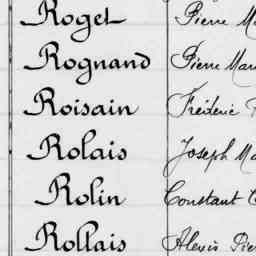 Roget Pierre
Rognand Pierre
Roisain Frédéric
Rolais Joseph
Rolin Constant
Rollais Alexis